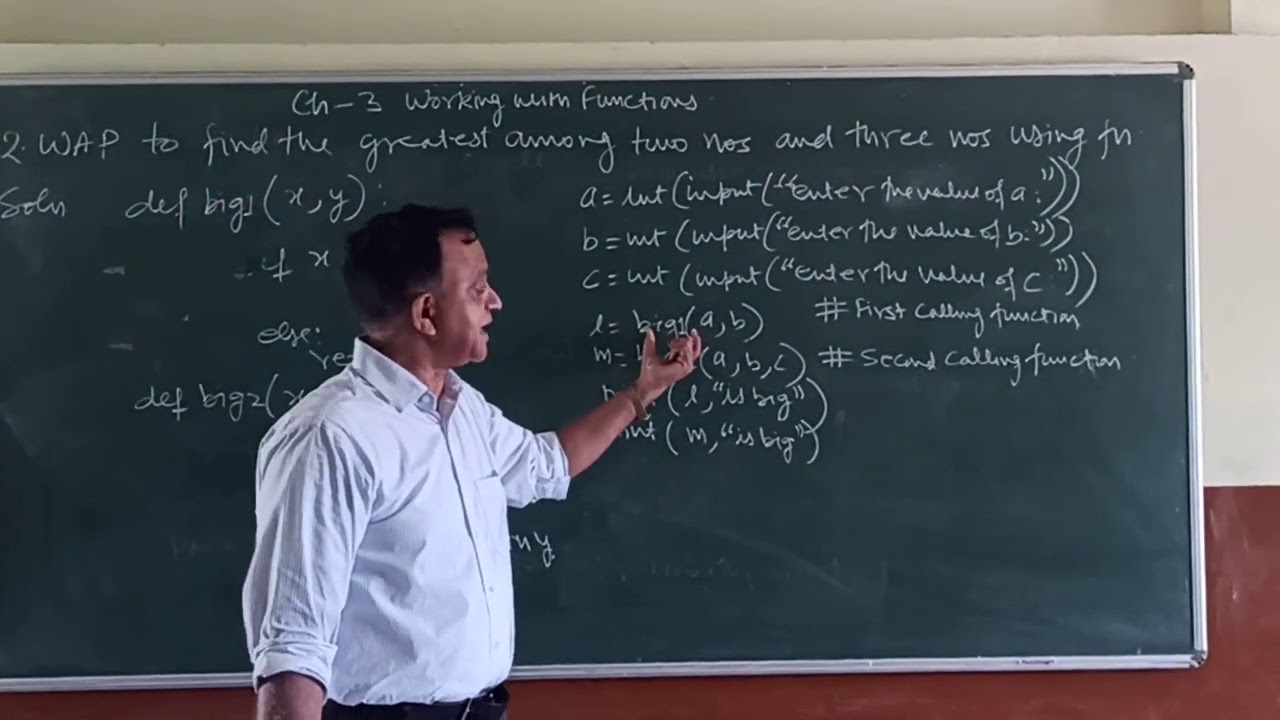 Ch-3 Working with Functions
2. WAP to find the greatest among two nos and three nos using fn
Soln def big1(x,y):
if x
else:
def big2(x
y
a=int(input("enter the value of a:"))
b=int(input("enter the value of b:"))
c=int(input("enter the value of c:"))
l=big1(a,b) # First calling function
m= (a,b,c) # Second calling function
(l,"is big")
(m,"is big")